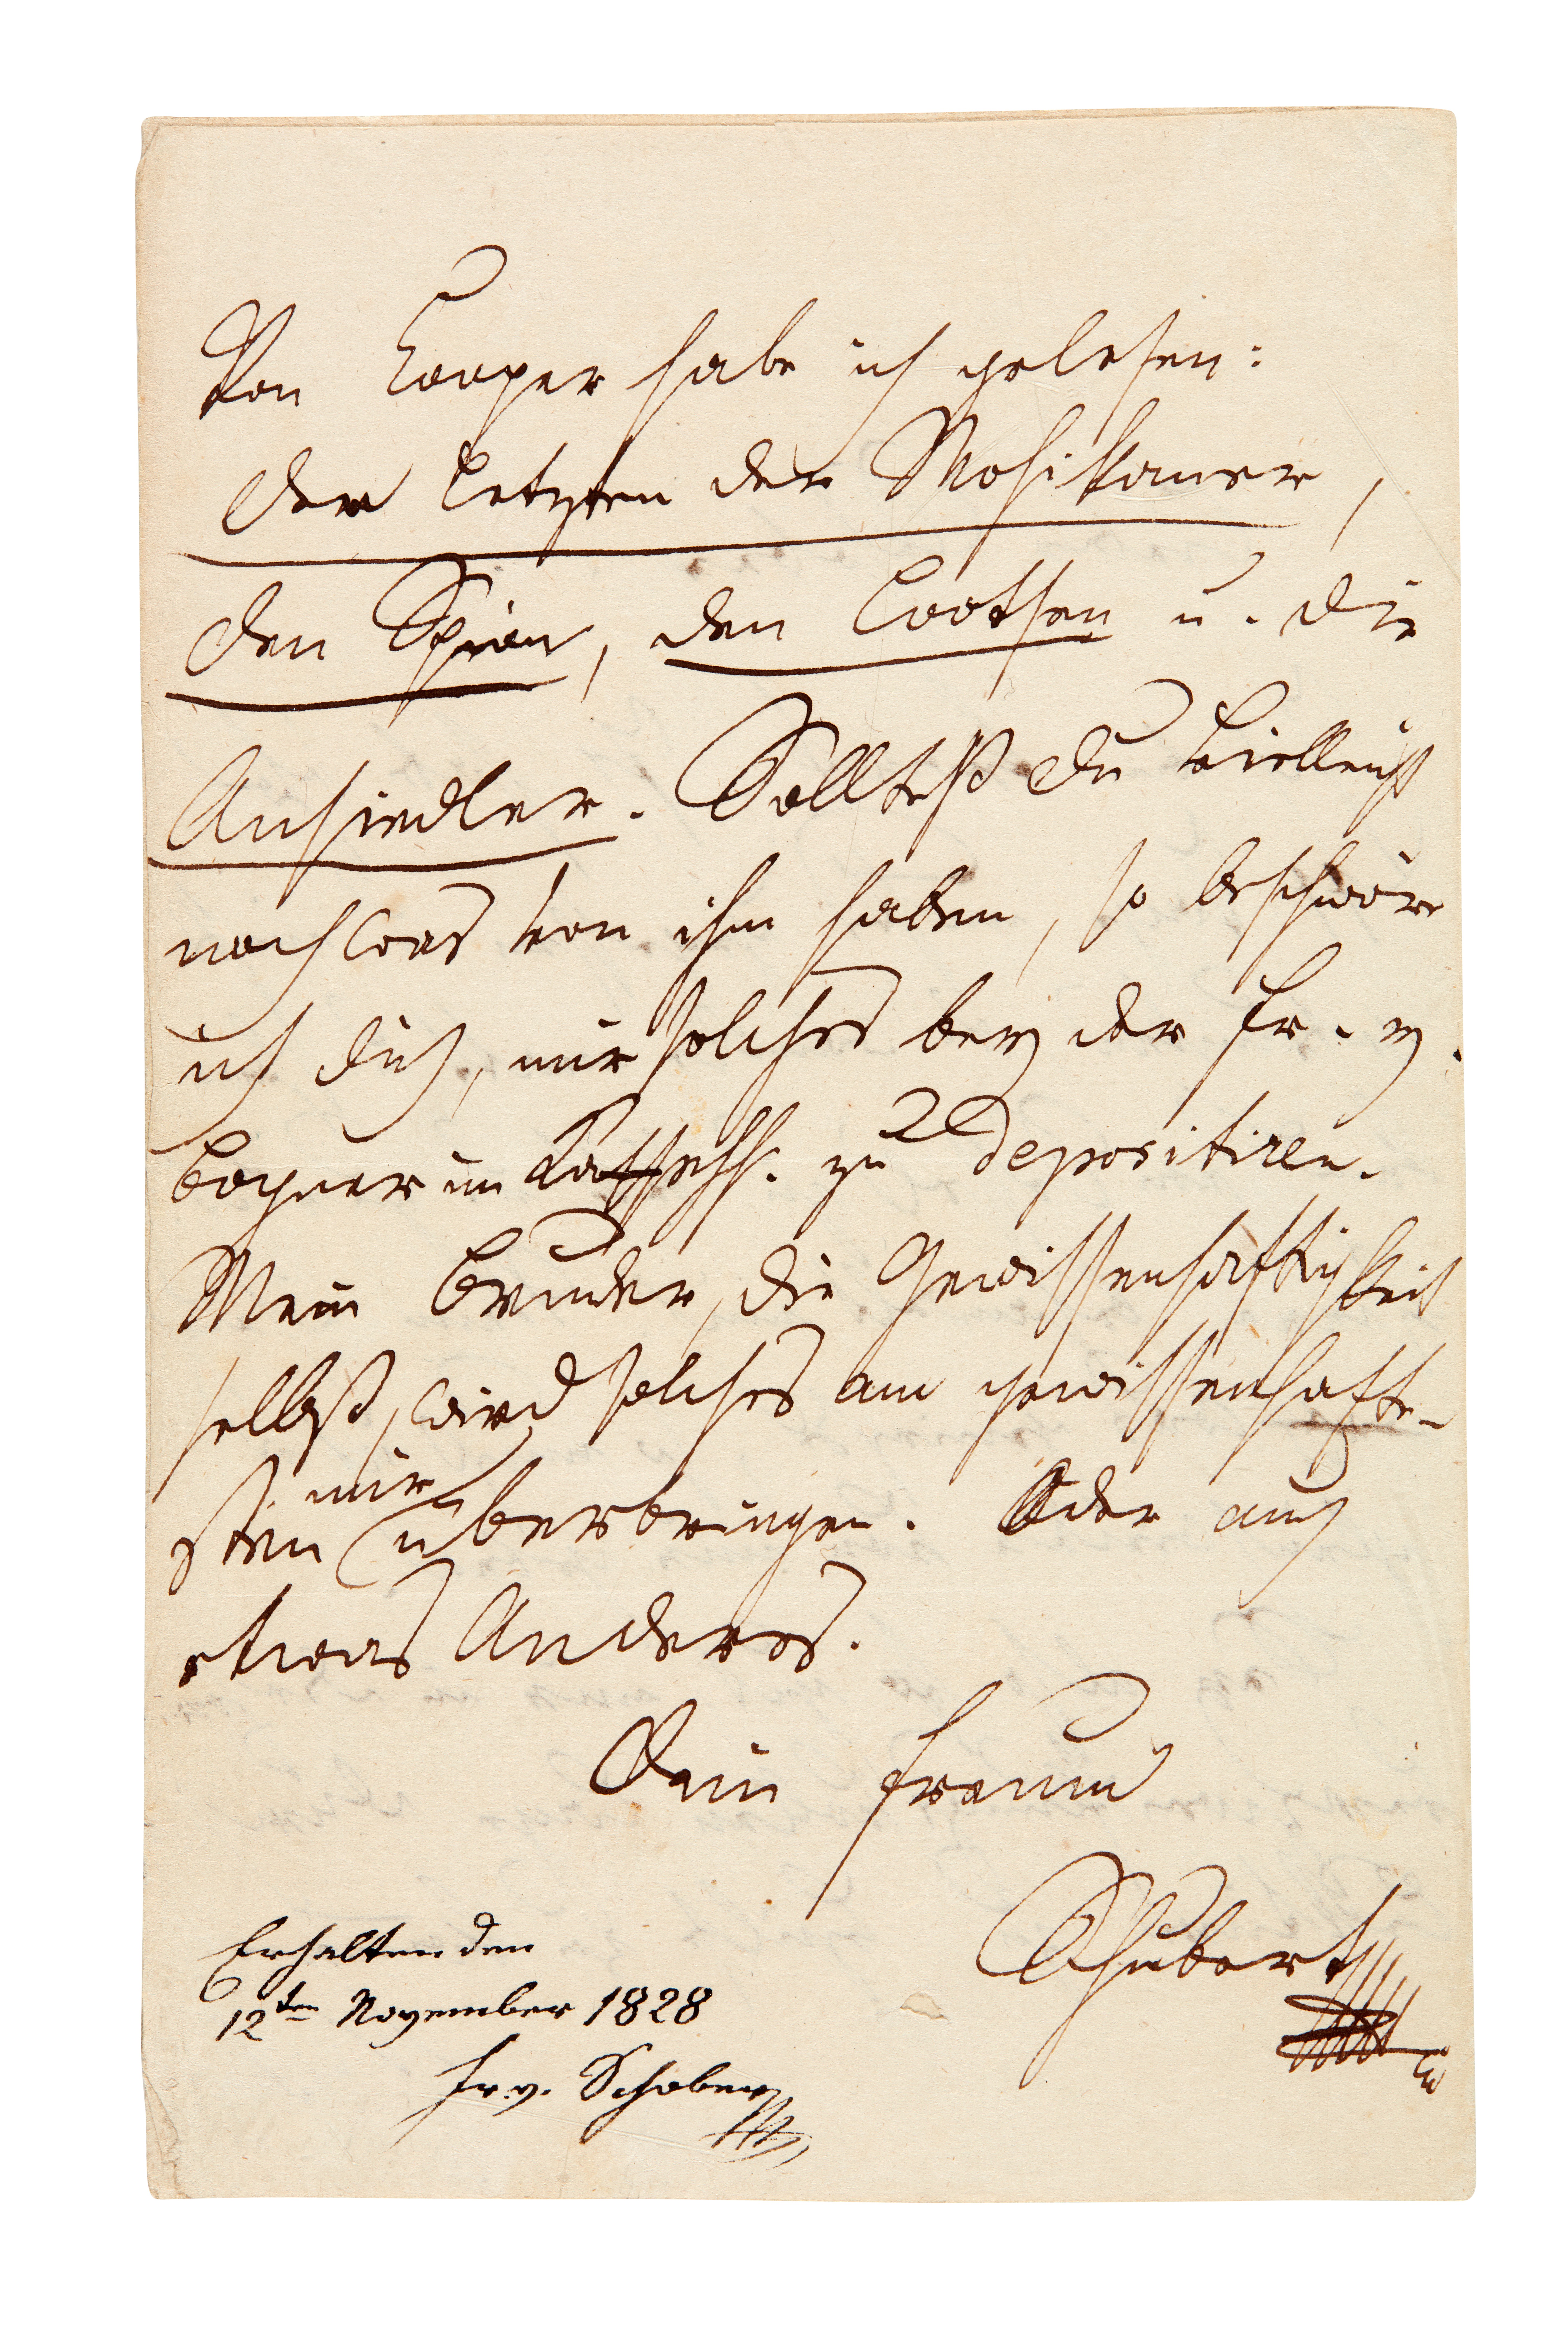 Von Cooper habe ich gelesen:
Den letzten der Mohikaner,
den Spion, den Lootsen u. die
Ansiedler. Solltest Du vielleicht
noch was von ihm haben, so beschwöre
ich dich, mir solches bey der Fr. v.
Bogner im Kaffehh. zu depositiren.
Mein Bruder, die Gewissenhaftigkeit
selbst, wird solches am gewissenhafte-
sten mir überbringen. Oder auch
etwas Anderes.
Dein Freund
Schubert
Erhalten den
12ten November 1828
Fr. v. Schober